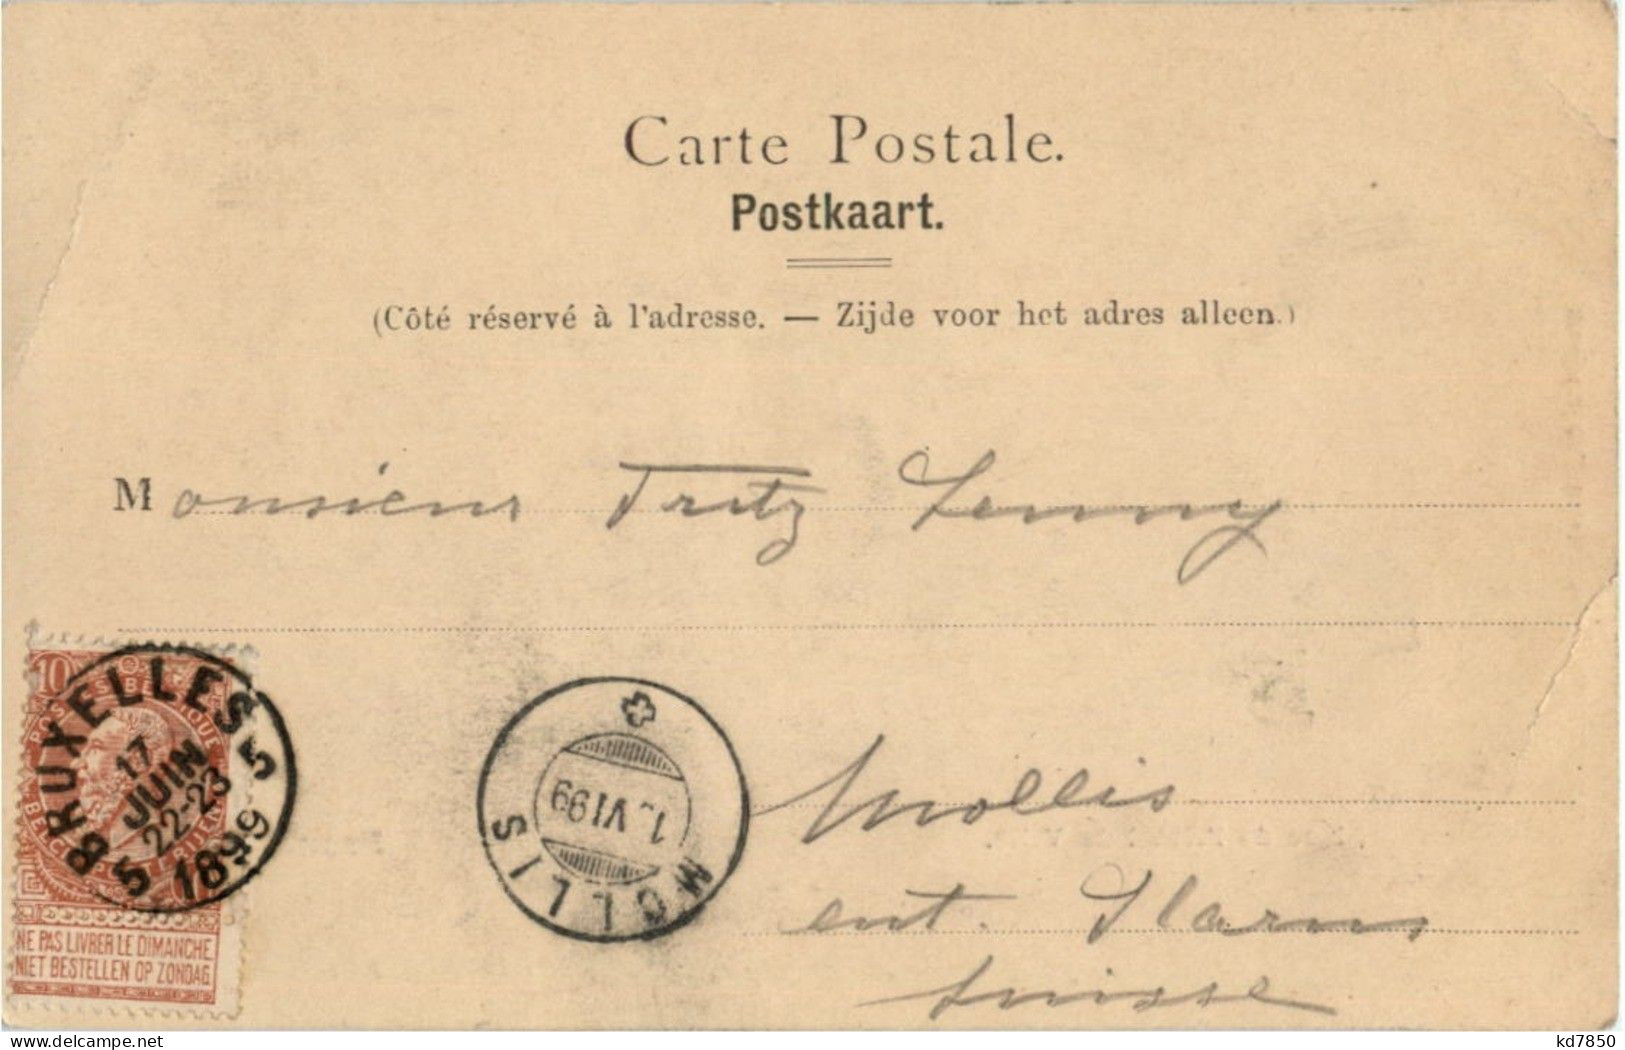 Carte Postale.
Postkaart.
(Côté réservé à l'adresse. — Zijde voor het adres alleen.)
Monsieur Fritz Jenny
Mollis
cnt. Glarus
Suisse
10
BRUXELLES 5
17
JUIN
22-23
5 1899
NE PAS LIVRER LE DIMANCHE
NIET BESTELLEN OP ZONDAG
MOLLIS
1. VI 99
www.delcampe.net
kd7850